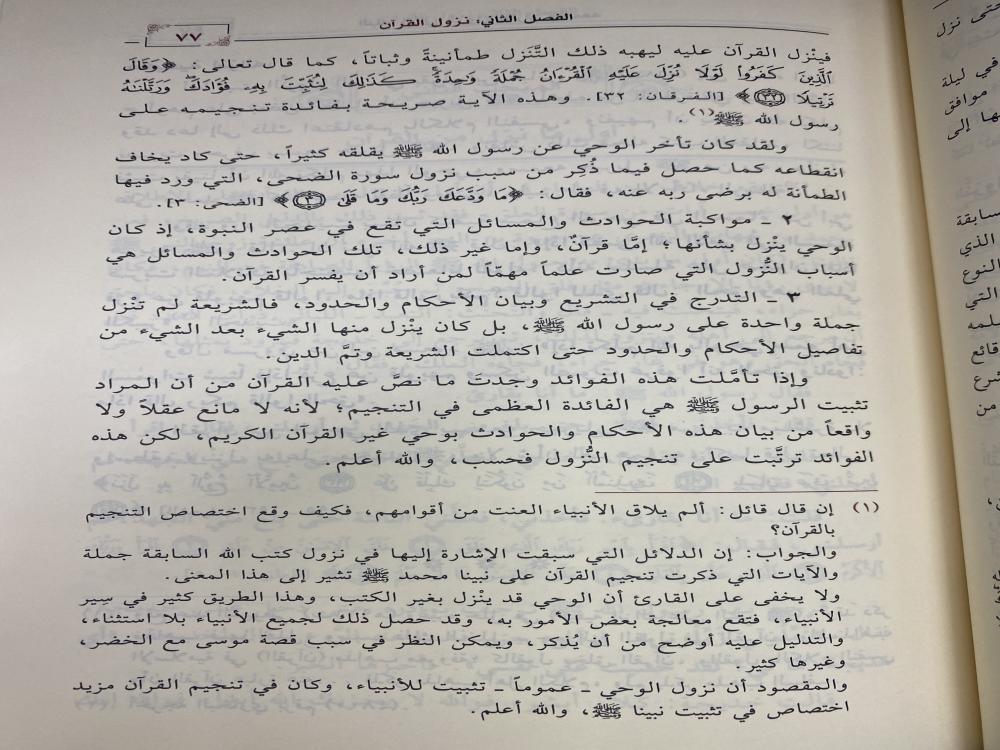 الفصل الثاني: نزول القرآن
٧٧
فينْزل القرآن عليه ليهبه ذلك التَّنَزل طمأنينةً وثباتاً، كما قال تعالى: ﴿وَقَالَ
ٱلَّذِينَ كَفَرُوا۟ لَوْلَا نُزِّلَ عَلَيْهِ ٱلْقُرْءَانُ جُمْلَةً وَٰحِدَةً كَذَٰلِكَ لِنُثَبِّتَ بِهِۦ فُؤَادَكَ وَرَتَّلْنَٰهُ
تَرْتِيلًا ﴿٣٢﴾﴾ [الفرقان: ٣٢]. وهذه الآية صريحة بفائدة تنجيمه على
رسول الله ﷺ(١).
ولقد كان تأخر الوحي عن رسول الله ﷺ يقلقه كثيراً، حتى كاد يخاف
انقطاعه كما حصل فيما ذُكِر من سبب نزول سورة الضحى، التي ورد فيها
الطمأنة له برضى ربه عنه، فقال: ﴿مَا وَدَّعَكَ رَبُّكَ وَمَا قَلَىٰ ﴿٣﴾﴾ [الضحى: ٣].
٢ ـ مواكبة الحوادث والمسائل التي تقع في عصر النبوة، إذ كان
الوحي ينْزل بشأنها؛ إمَّا قرآنٌ، وإما غير ذلك، تلك الحوادث والمسائل هي
أسباب النُّزول التي صارت علماً مهمّاً لمن أراد أن يفسر القرآن.
٣ ـ التدرج في التشريع وبيان الأحكام والحدود، فالشريعة لم تنْزل
جملة واحدة على رسول الله ﷺ، بل كان ينْزل منها الشيء بعد الشيء من
تفاصيل الأحكام والحدود حتى اكتملت الشريعة وتمَّ الدين.
وإذا تأمَّلت هذه الفوائد وجدتَ ما نصَّ عليه القرآن من أن المراد
تثبيت الرسول ﷺ هي الفائدة العظمى في التنجيم؛ لأنه لا مانع عقلاً ولا
واقعاً من بيان هذه الأحكام والحوادث بوحي غير القرآن الكريم، لكن هذه
الفوائد ترتَّبت على تنجيم النُّزول فحسب، والله أعلم.
(١) إن قال قائل: ألم يلاق الأنبياء العنت من أقوامهم، فكيف وقع اختصاص التنجيم
بالقرآن؟
والجواب: إن الدلائل التي سبقت الإشارة إليها في نزول كتب الله السابقة جملة
والآيات التي ذكرت تنجيم القرآن على نبينا محمد ﷺ تشير إلى هذا المعنى.
ولا يخفى على القارئ أن الوحي قد ينْزل بغير الكتب، وهذا الطريق كثير في سِير
الأنبياء، فتقع معالجة بعض الأمور به، وقد حصل ذلك لجميع الأنبياء بلا استثناء،
والتدليل عليه أوضح من أن يُذكر، ويمكن النظر في سبب قصة موسى مع الخضر،
وغيرها كثير.
والمقصود أن نزول الوحي ـ عموماً ـ تثبيت للأنبياء، وكان في تنجيم القرآن مزيد
اختصاص في تثبيت نبينا ﷺ، والله أعلم.
حتى نزل
في ليلة
موافق
ها إلى
سابقة
الذي
النوع
التي
قائع
من